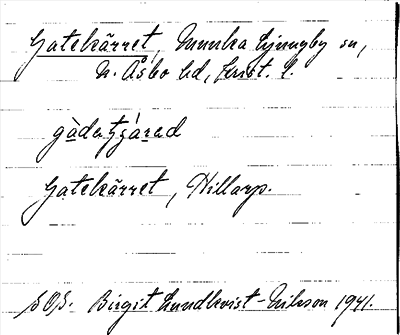 Gatekärret, Munka Ljungby sn,
N. Åsbo hd, Krist. l.
gàdatʃáræd
Gatekärret, Hillarp.
SOS. Birgit Lundkvist-Nilsson 1941.